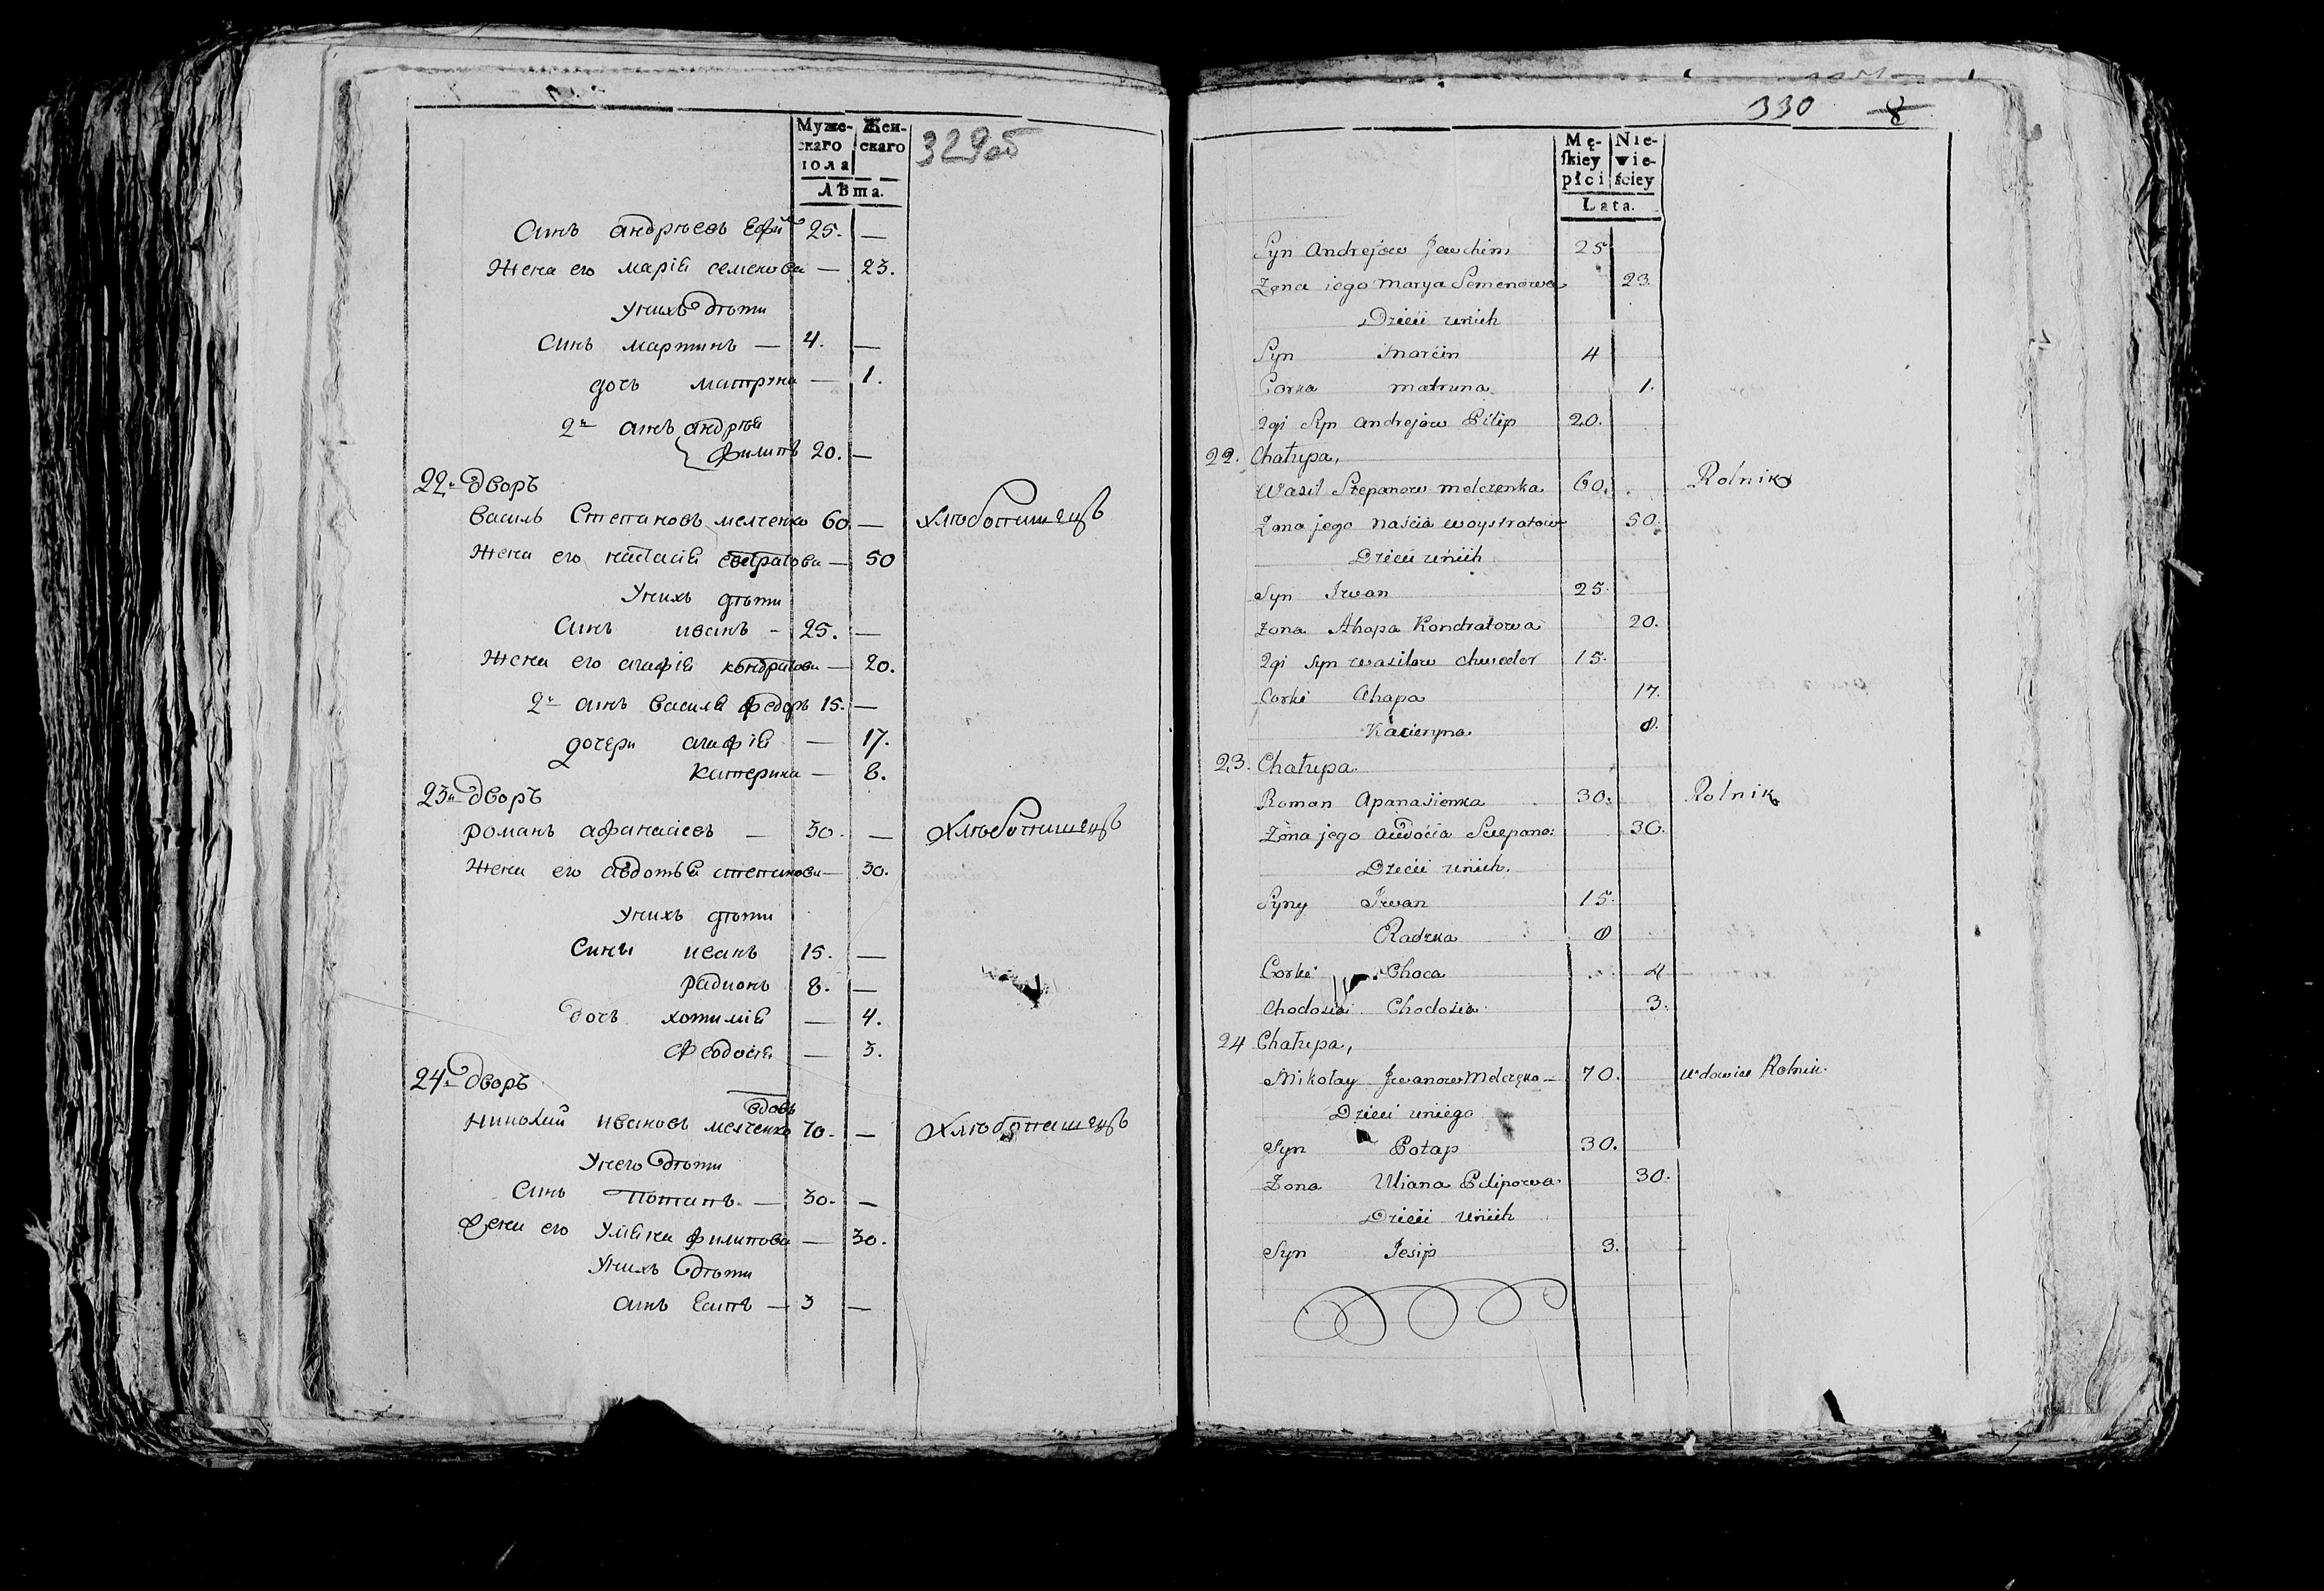 Муже-
скаго
пола
Жен-
скаго
Лѣта.
329об
Синъ андрѣевъ Ефим 25. —
Жена его марія семенова — 23.
Унихъ дѣти
Синъ мартинъ — 4. —
дочь матруна — 1.
2й синъ андрѣя
филипъ 20. —
22й дворъ
Василь Степановъ мелченко 60 — хлѣбопашецъ
Жена его настасія евстратова — 50
Унихъ дѣти
Синъ иванъ - 25. —
Жена его агафія кондратова — 20.
2й синъ василя федоръ 15. —
дочери агафія — 17.
катерина — 8.
23й дворъ
романъ афанасіевъ — 30. — хлѣбопашецъ
Жена его авдотья степанова — 30.
Унихъ дѣти
Сины иванъ 15. —
радионъ 8. —
дочь хотимія — 4.
федосія — 3.
24й дворъ
вдовъ
николай ивановъ мелченко 70. — хлѣбопашецъ
Унего дѣти
Синъ потапъ — 30. —
Жена его уляна филипова — 30.
Унихъ дѣти
синъ есипъ — 3 —
330 8
Mę-
skiey
płci
Nie-
wie-
ściey
Lata.
Syn Andrejow Jawchim 25
Zona iego Marya Semenowa 23.
Dzieci unich
Syn Marcin 4
Corka Matruna 1.
2gi Syn Andrejow Pilip 20.
22. Chałupa,
Wasil Stepanow Melczenka 60. Rolnik
Zona jego Naścia Woystratow 50.
Dzieci unich
Syn Iwan 25.
Zona Ahapa Kondratowa 20.
2gi Syn Wasilow Chwedor 15.
Corki Ahapa 17.
Kacieryna 8.
23. Chałupa.
Roman Apanasienka 30. Rolnik
Zona jego Awdocia Sciepano: 30.
Dzieci unich.
Syny Iwan 15.
Radzka 8
Corki Choca 4
Chodosia Chodosia 3.
24 Chałupa,
Mikołay Iwanow Melczęko — 70. wdowiec Rolnik.
Dzieci uniego
Syn Potap 30.
Zona Uliana Pilipowa 30.
Dzieci unich
Syn Jesip 3.